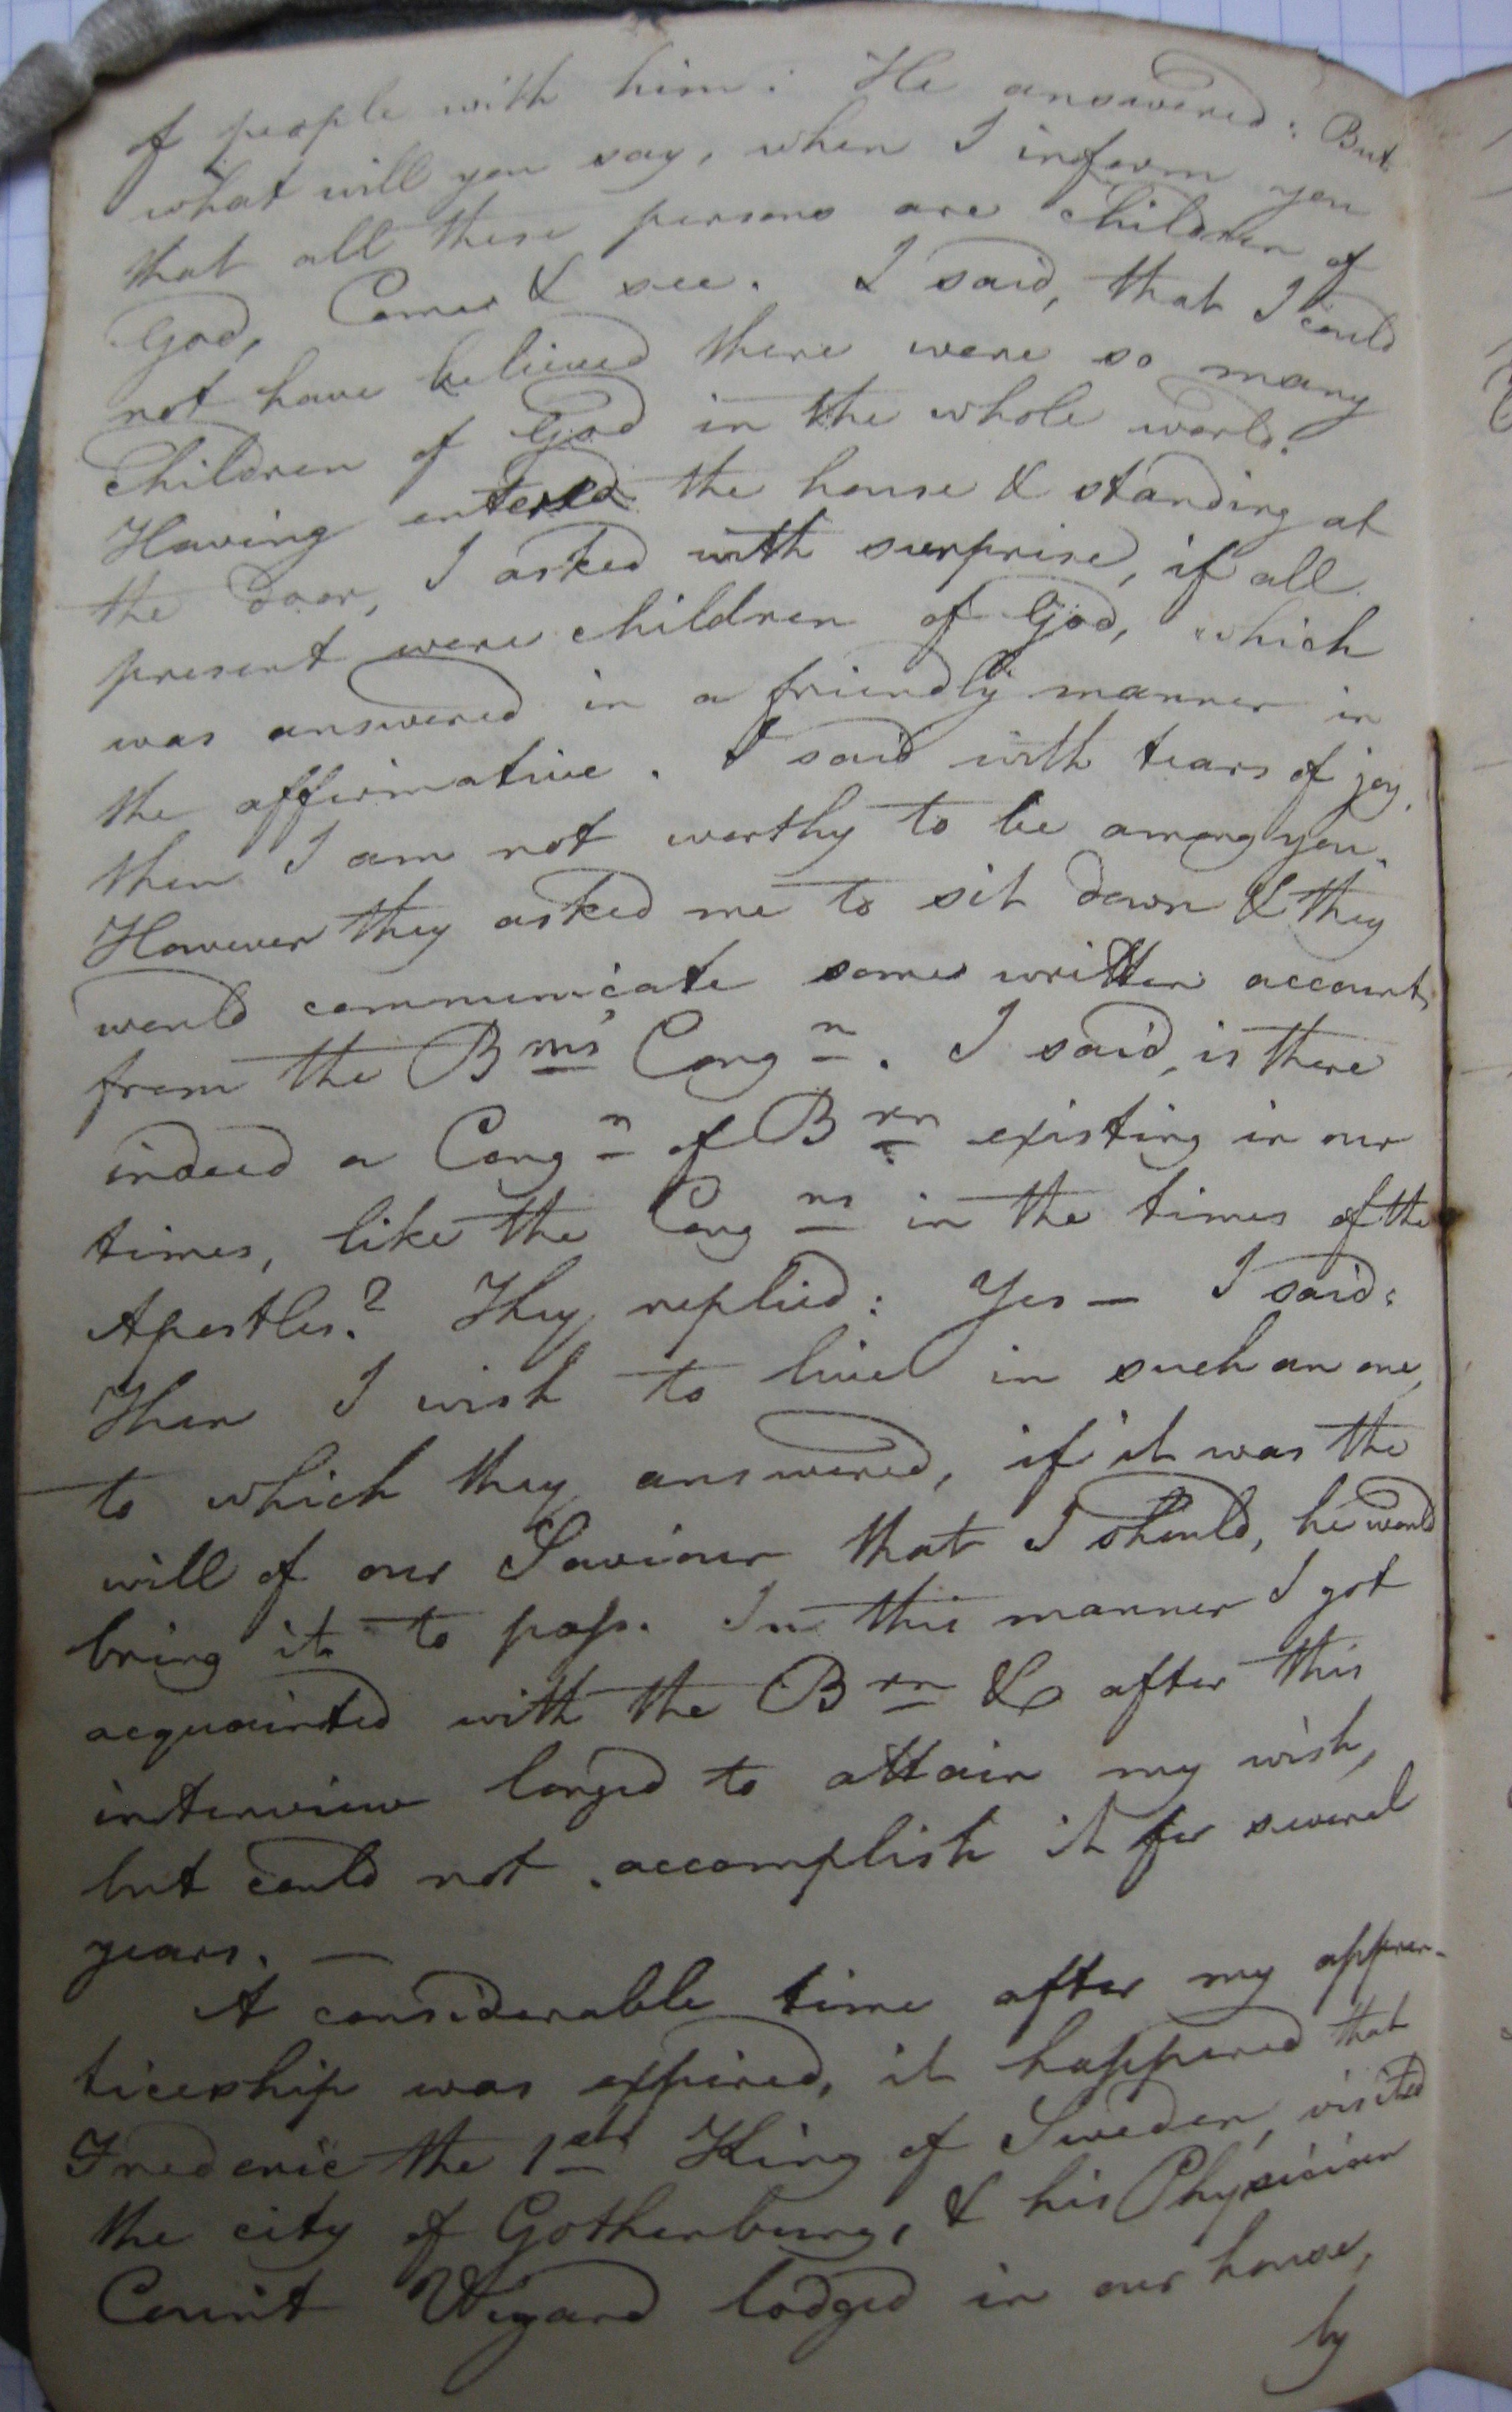 of people with him: He answered: But
what will you say, when I inform you
that all these persons are Children of
God, Come & see. I said, that I could
not have believed there were so many
Children of God in the whole world.
Having entered the house & standing at
the door, I asked with surprise, if all
present were children of God, which
was answered in a friendly manner in
the affirmative. I said with tears of joy,
then I am not worthy to be among you.
However they asked me to sit down & they
would communicate some written accounts
from the Brns' Congn. I said, is there
indeed a Congn of Brn existing in our
times, like the Congns in the times of the
Apostles.? They replied: Yes — I said:
Then I wish to live in such an one,
to which they answered, if it was the
will of our Saviour that I should, he would
bring it to pass. In this manner I got
acquainted with the Brn & after this
interview longed to attain my wish,
but could not accomplish it for several
years. —
A considerable time after my appren-
ticeship was expired, it happened that
Frederic the 1st King of Sweden, visited
the city of Gothenburg, & his Physician
Count Wegand lodged in our house,
by